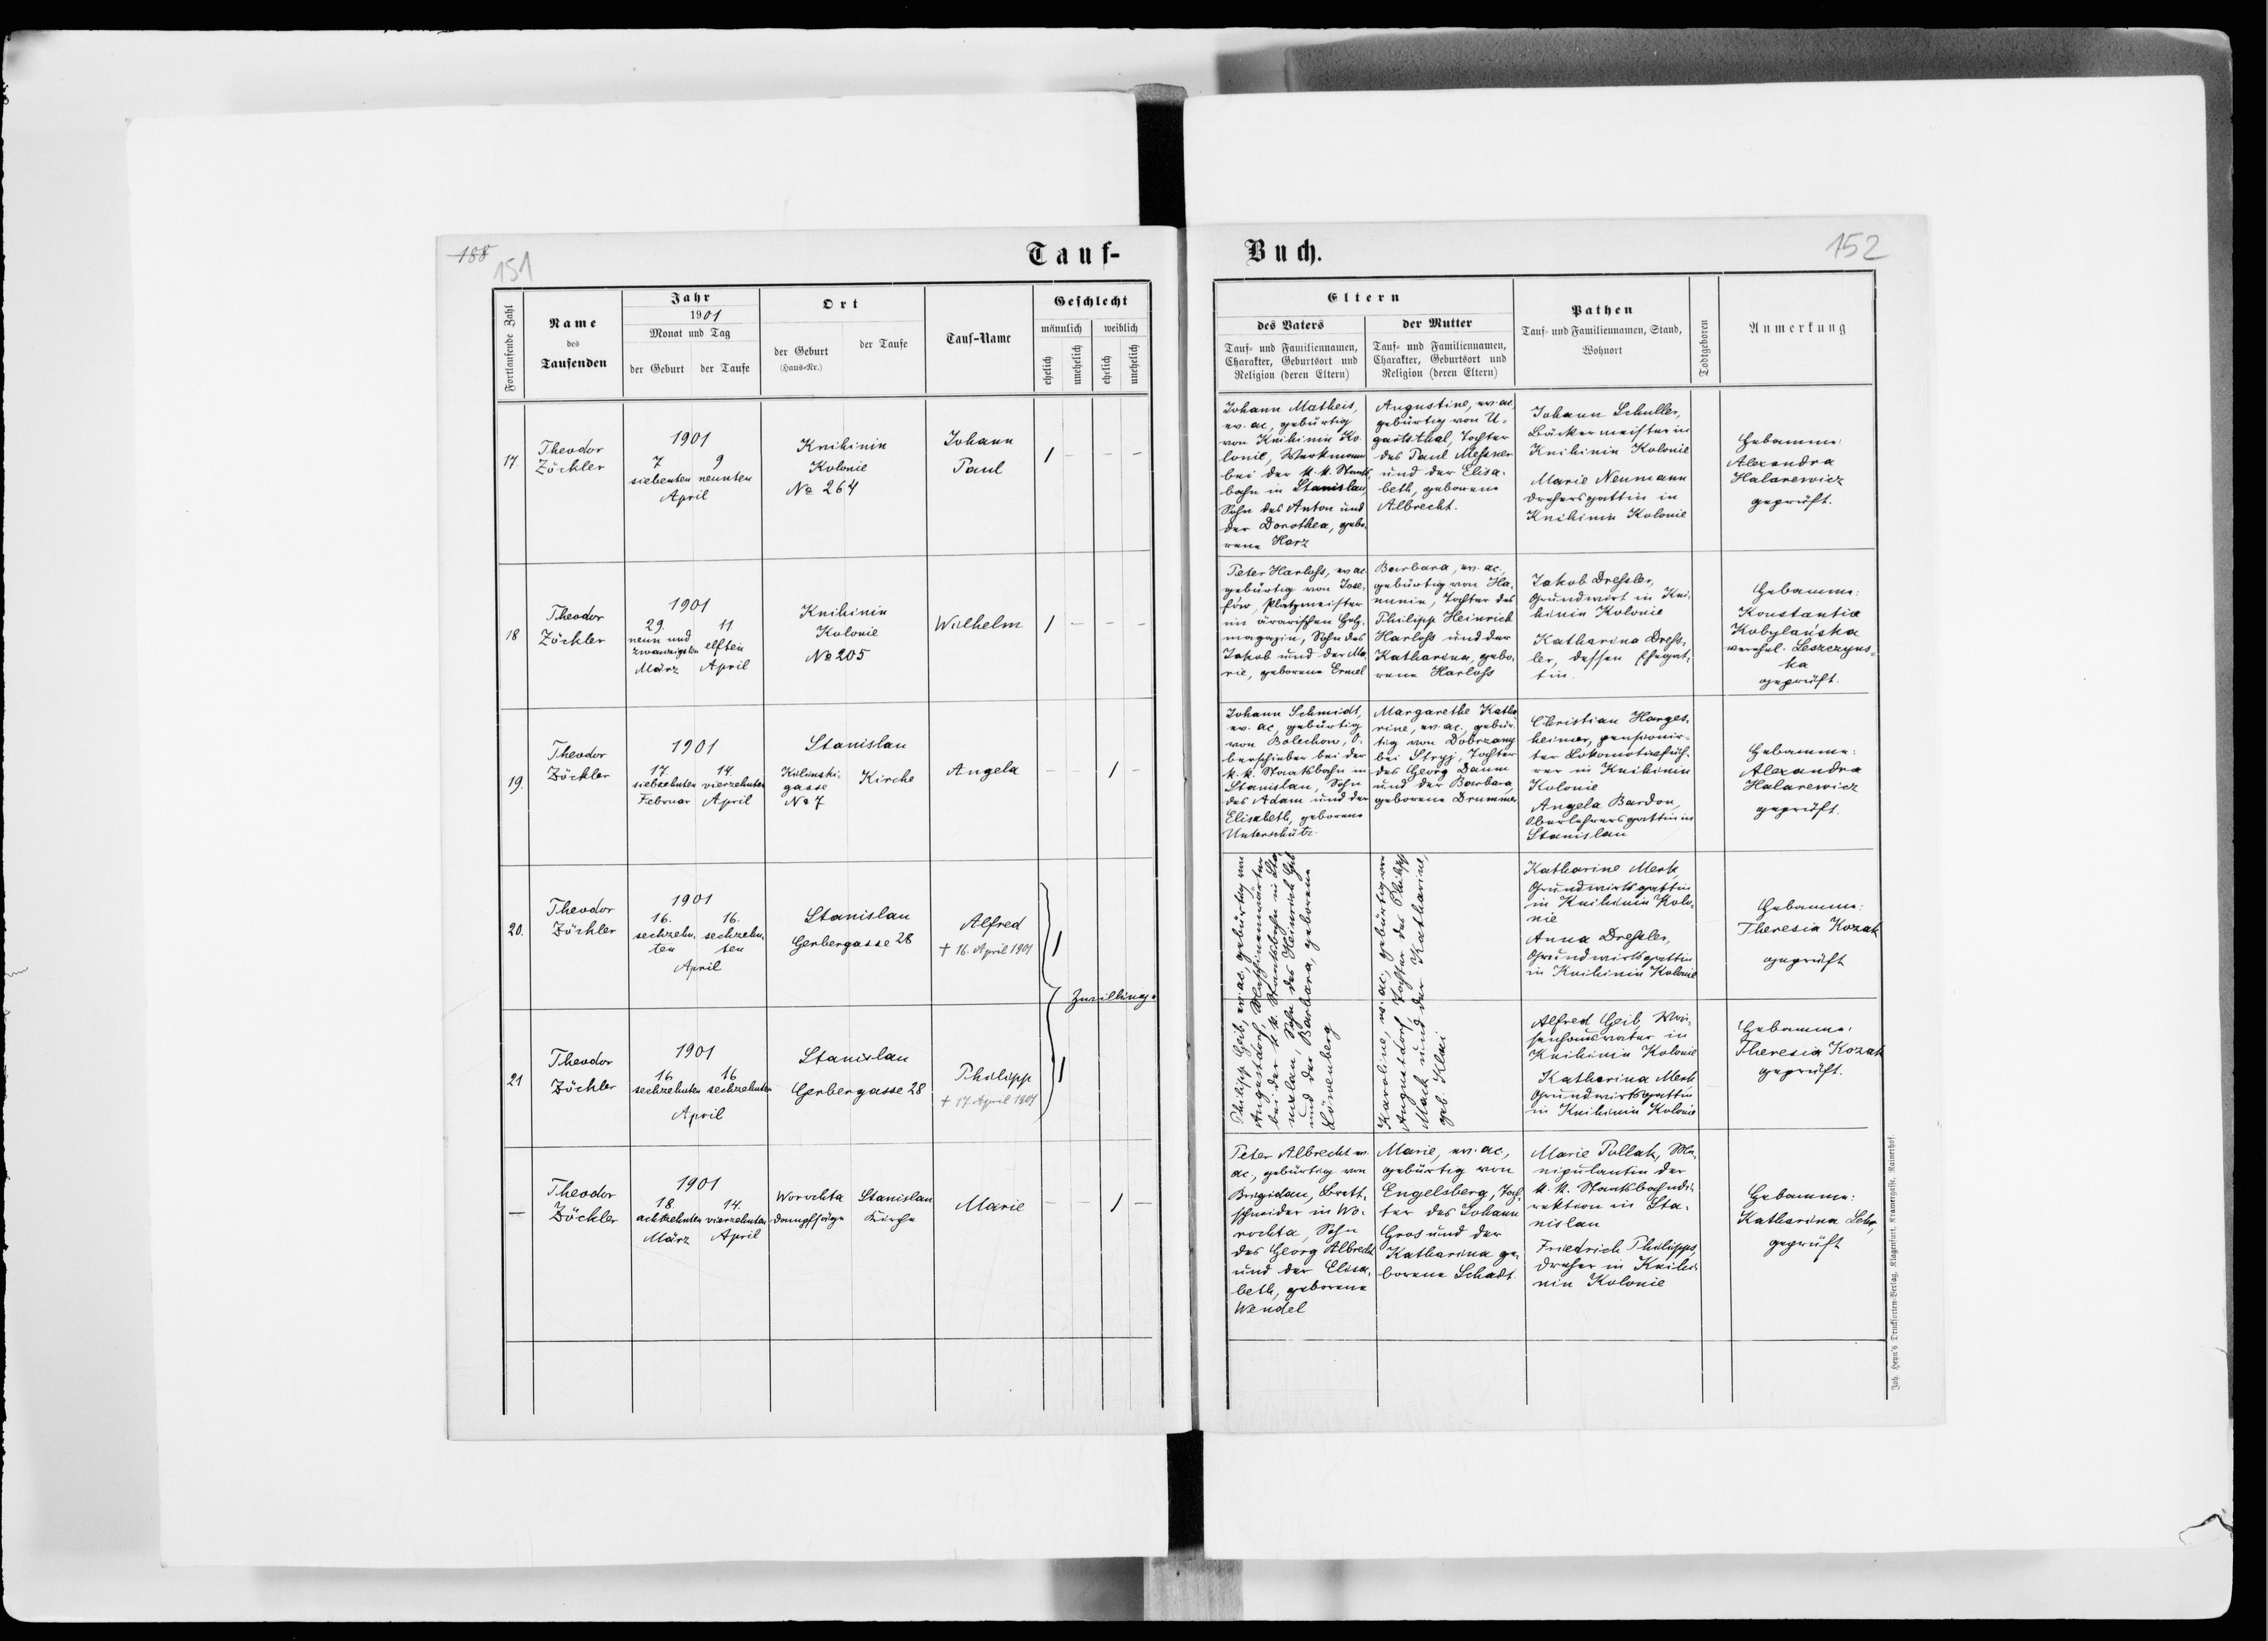 188
151
Tauf-
Fortlaufende Zahl
Name
des
Taufenden
Jahr
1901
Monat und Tag
der Geburt
der Taufe
Ort
der Geburt
(Haus-Nr.)
der Taufe
Tauf-Name
Geschlecht
männlich
weiblich
ehelich
unehelich
ehelich
unehelich
17.
Theodor
Zöckler
1901
7 9
siebenten neunten
April
Knihinin
Kolonie
No 264
Johann
Paul
18
Theodor
Zöckler
1901
29. 11
neun und
zwanzigsten elften
März April
Knihinin
Kolonie
No 205
Wilhelm
19.
Theodor
Zöckler
1901
17. 14.
siebzehnten vierzehnten
Februar April
Stanislau
Kilinski-
gasse
No 7
Kirche
Angela
20.
Theodor
Zöckler
1901
16. 16.
sechzehn- sechzehn-
ten ten
April
Stanislau
Gerbergasse 28
Alfred
† 16. April 1901
Zwillinge
21
Theodor
Zöckler
1901
16 16
sechzehnten sechzehnten
April
Stanislau
Gerbergasse 28
Philipp
† 17. April 1901
—
Theodor
Zöckler
1901
18. 14.
achtzehnten vierzehnten
März April
Worochta
Dampfsäge
Stanislau
Kirche
Marie
Buch.
152
Eltern
des Vaters
Tauf- und Familiennamen,
Charakter, Geburtsort und
Religion (deren Eltern)
der Mutter
Tauf- und Familiennamen,
Charakter, Geburtsort und
Religion (deren Eltern)
Pathen
Tauf- und Familiennamen, Stand,
Wohnort
Todtgeboren
Anmerkung
Johann Matheis,
ev. ac, gebürtig
von Knihinin Ko-
lonie, Werkmann
bei der k. k. Staats-
bahn in Stanislau,
Sohn des Anton und
der Dorothea, gebo-
rene Harz
Augustine, ev. ac,
gebürtig von U-
gartsthal, Tochter
des Paul Messner
und der Elisa-
beth, geborene
Albrecht.
Johann Schuller,
Bäckermeister in
Knihinin Kolonie
Marie Neumann
Drehersgattin in
Knihinin Kolonie
Hebamme:
Alexandra
Halarewicz
geprüft.
Peter Harlohs, ev. ac
gebürtig von Jose-
fów, Platzmeister
im ärarischen Holz-
magazin, Sohn des
Jakob und der Ma-
rie, geborene Ermel
Barbara, ev. ac,
gebürtig von Ha-
nunin, Tochter des
Philipp Heinrich
Harlohs und der
Katharina, gebo-
rene Harlohs
Jakob Dressler,
Grundwirt in Kni-
hinin Kolonie
Katharina Dress-
ler, dessen Ehegat-
tin.
Hebamme:
Konstantia
Kobylańska
verehel. Leszczyns-
ka
geprüft.
Johann Schmidt,
ev. ac, gebürtig
von Bolechow, O-
berschieber bei der
k. k. Staatsbahn in
Stanislau, Sohn
des Adam und der
Elisabeth, geborene
Unterschütz.
Margarethe Katha-
rine, ev. ac, gebür-
tig von Dobrzany
bei Stryj, Tochter
des Georg Daum
und der Barbara,
geborene Drummer
Christian Harges-
heimer, pensionir-
ter Lokomotivfüh-
rer in Knihinin
Kolonie
Angela Bardon,
Oberlehrersgattin in
Stanislau
Hebamme:
Alexandra
Halarewicz
geprüft.
Philipp Geib, ev. ac, gebürtig von
Augustdorf, Maschinenwärter
bei der k. k. Staatsbahn in Sta-
nislau, Sohn des Heinrich Geib
und der Barbara, geborene
Löwenberg
Karoline, ev. ac, gebürtig von
Augustdorf, Tochter des Philipp
Mack und der Katharine,
geb. Klei
Katharine Merk,
Grundwirtsgattin
in Knihinin Kolo-
nie
Anna Dressler,
Grundwirtsgattin
in Knihinin Kolonie
Hebamme:
Theresia Kozak
geprüft
Alfred Geib, Wai-
senhausvater in
Knihinin Kolonie
Katharina Merk
Grundwirtsgattin
in Knihinin Kolonie
Hebamme:
Theresia Kozak
geprüft.
Peter Albrecht ev.
ac, gebürtig von
Brigidau, Brett-
schneider in Wo-
rochta, Sohn
des Georg Albrecht
und der Elisa-
beth, geborene
Wendel
Marie, ev. ac,
gebürtig von
Engelsberg, Toch-
ter des Johann
Gros und der
Katharina ge-
borene Schadt
Marie Pollak, Ma-
nipulantin der
k. k. Staatsbahndi-
rektion in Sta-
nislau
Friedrich Philipps,
Dreher in Knihi-
nin Kolonie
Hebamme:
Katharina Lehr,
geprüft
Joh. Heyn's Drucksorten-Verlag, Klagenfurt, Kramergasse, Rainerhof.